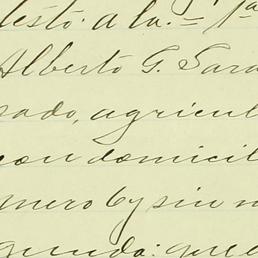 testó: a la: = 1a
Alberto G. Sara
sado, agricul
con domicil
mero 67 sin n
gunda: que